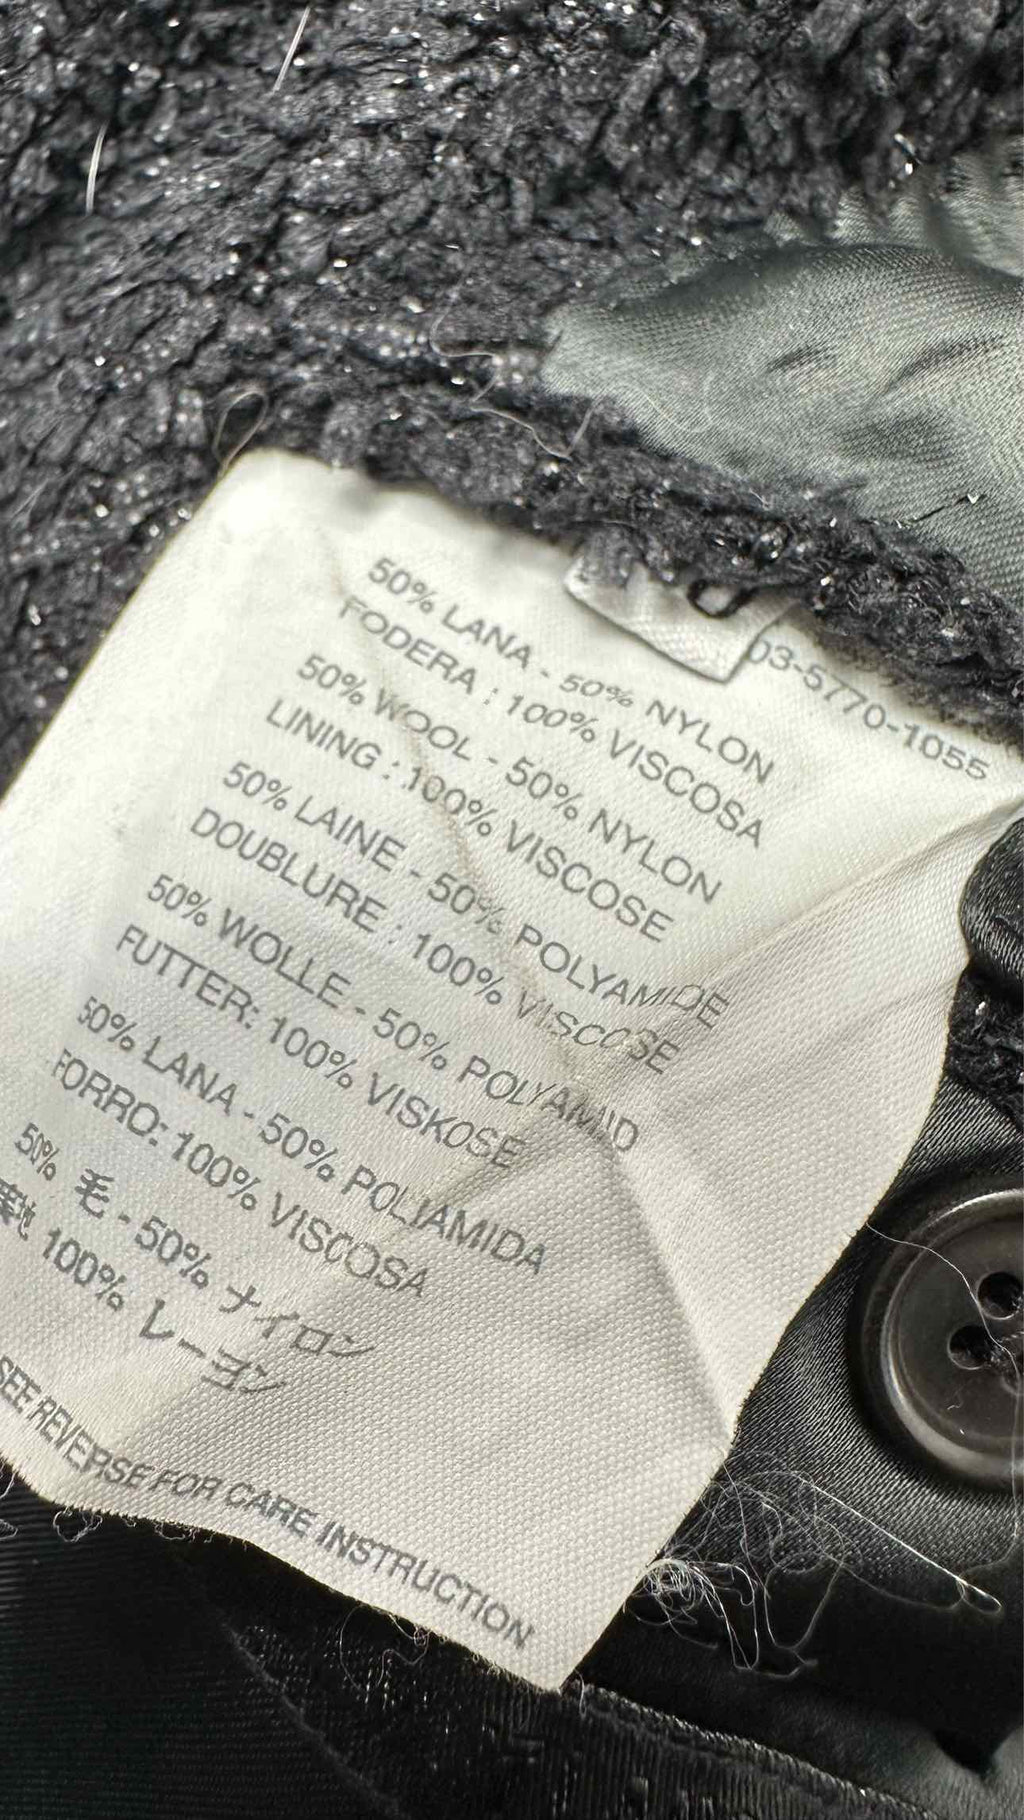 03-5770-1055
50% LANA - 50% NYLON
FODERA : 100% VISCOSA
50% WOOL - 50% NYLON
LINING : 100% VISCOSE
50% LAINE - 50% POLYAMIDE
DOUBLURE : 100% VISCOSE
50% WOLLE - 50% POLYAMID
FUTTER: 100% VISKOSE
50% LANA - 50% POLIAMIDA
FORRO: 100% VISCOSA
50% 毛 - 50% ナイロン
裏地 100% レーヨン
SEE REVERSE FOR CARE INSTRUCTION